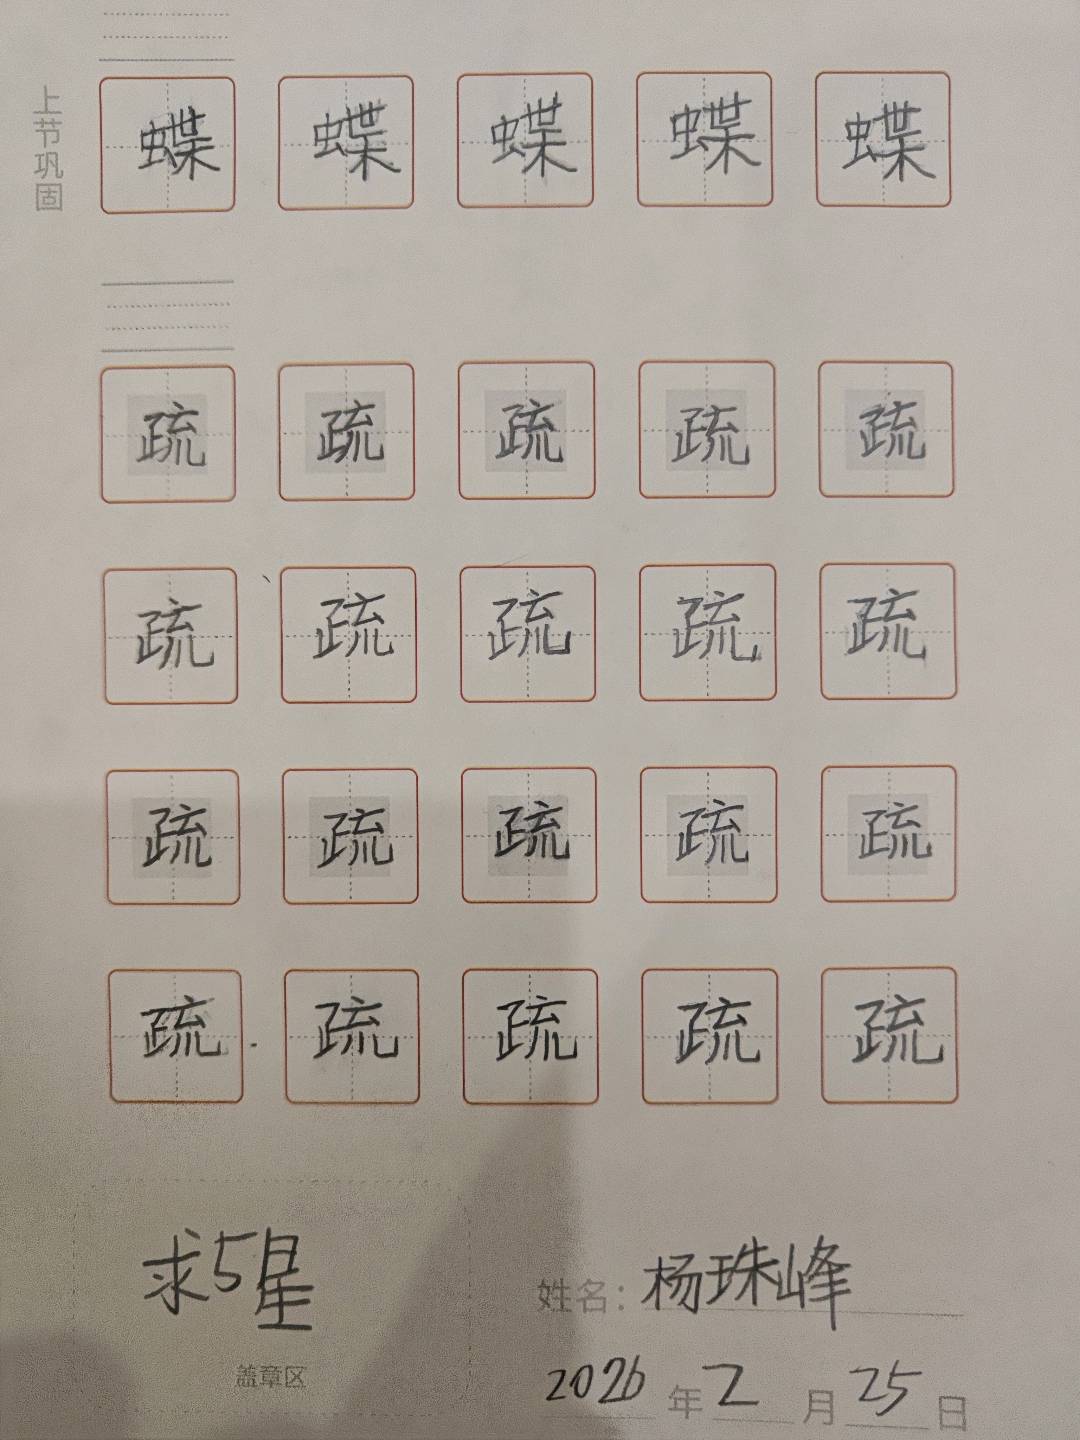 上节巩固
蝶 蝶 蝶 蝶 蝶
疏 疏 疏 疏 疏
疏 疏 疏 疏 疏
疏 疏 疏 疏 疏
疏 疏 疏 疏 疏
求5星
盖章区
姓名：杨珠峰
2026年2月25日